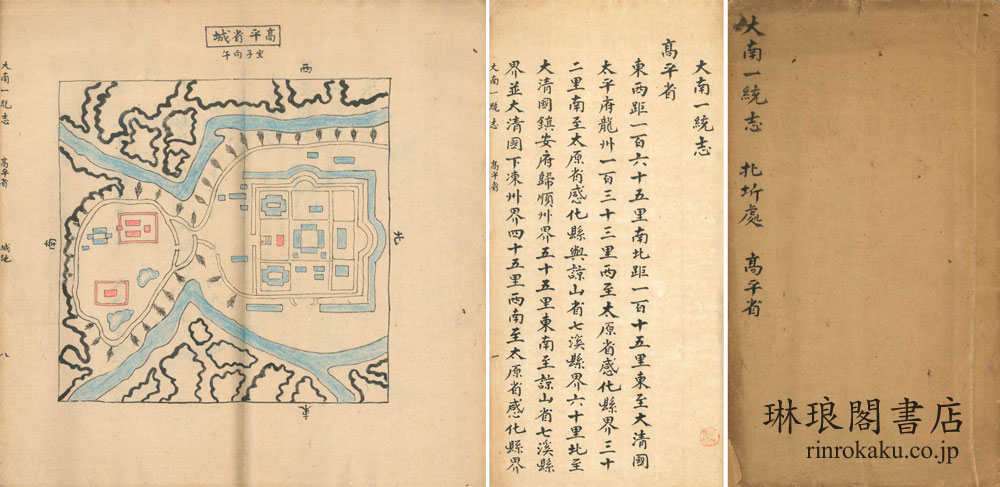 高平省城
坐子向午
西
南
北
東
大南一統志 高平省 城池 八
大南一統志
高平省
東西距一百六十五里南北距一百十五里東至大清國
太平府龍州一百三十三里西至太原省感化縣界三十
二里南至太原省感化縣與諒山省七溪縣界六十里北至
大清國鎮安府歸順州界五十五里東南至諒山省七溪縣
界並大清國下凍州界四十五里西南至太原省感化縣界
大南一統志 高平省 一
大南一統志 北圻處 高平省
琳琅閣書店
rinrokaku.co.jp